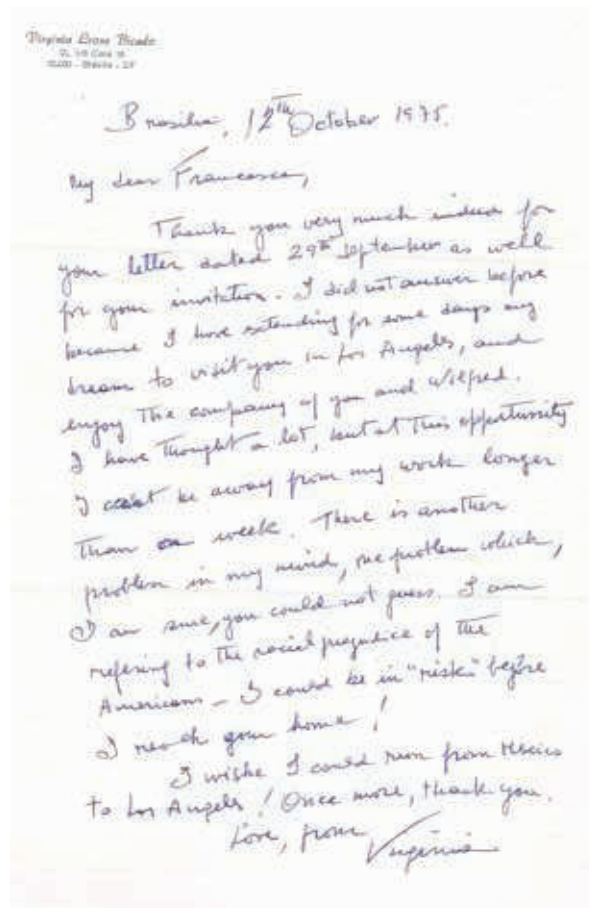 Virginia Leone Bicudo
Brasilia, 12th October 1975.
My dear Francesca,
Thank you very much indeed for
your letter dated 29th September as well
for your invitation. I did not answer before
because I have extending for some days my
dream to visit you in Los Angeles, and
enjoy the company of you and Wilfred.
I have thought a lot, but at this opportunity
I can't be away from my work longer
than a week. There is another
problem in my mind, one problem which,
I am sure, you could not guess. I am
refering to the racial prejudice of the
Americans – I could be in "risk" before
I reach your home!
I wishe I could run from Mexico
to Los Angeles! Once more, thank you.
Love, from Virginia